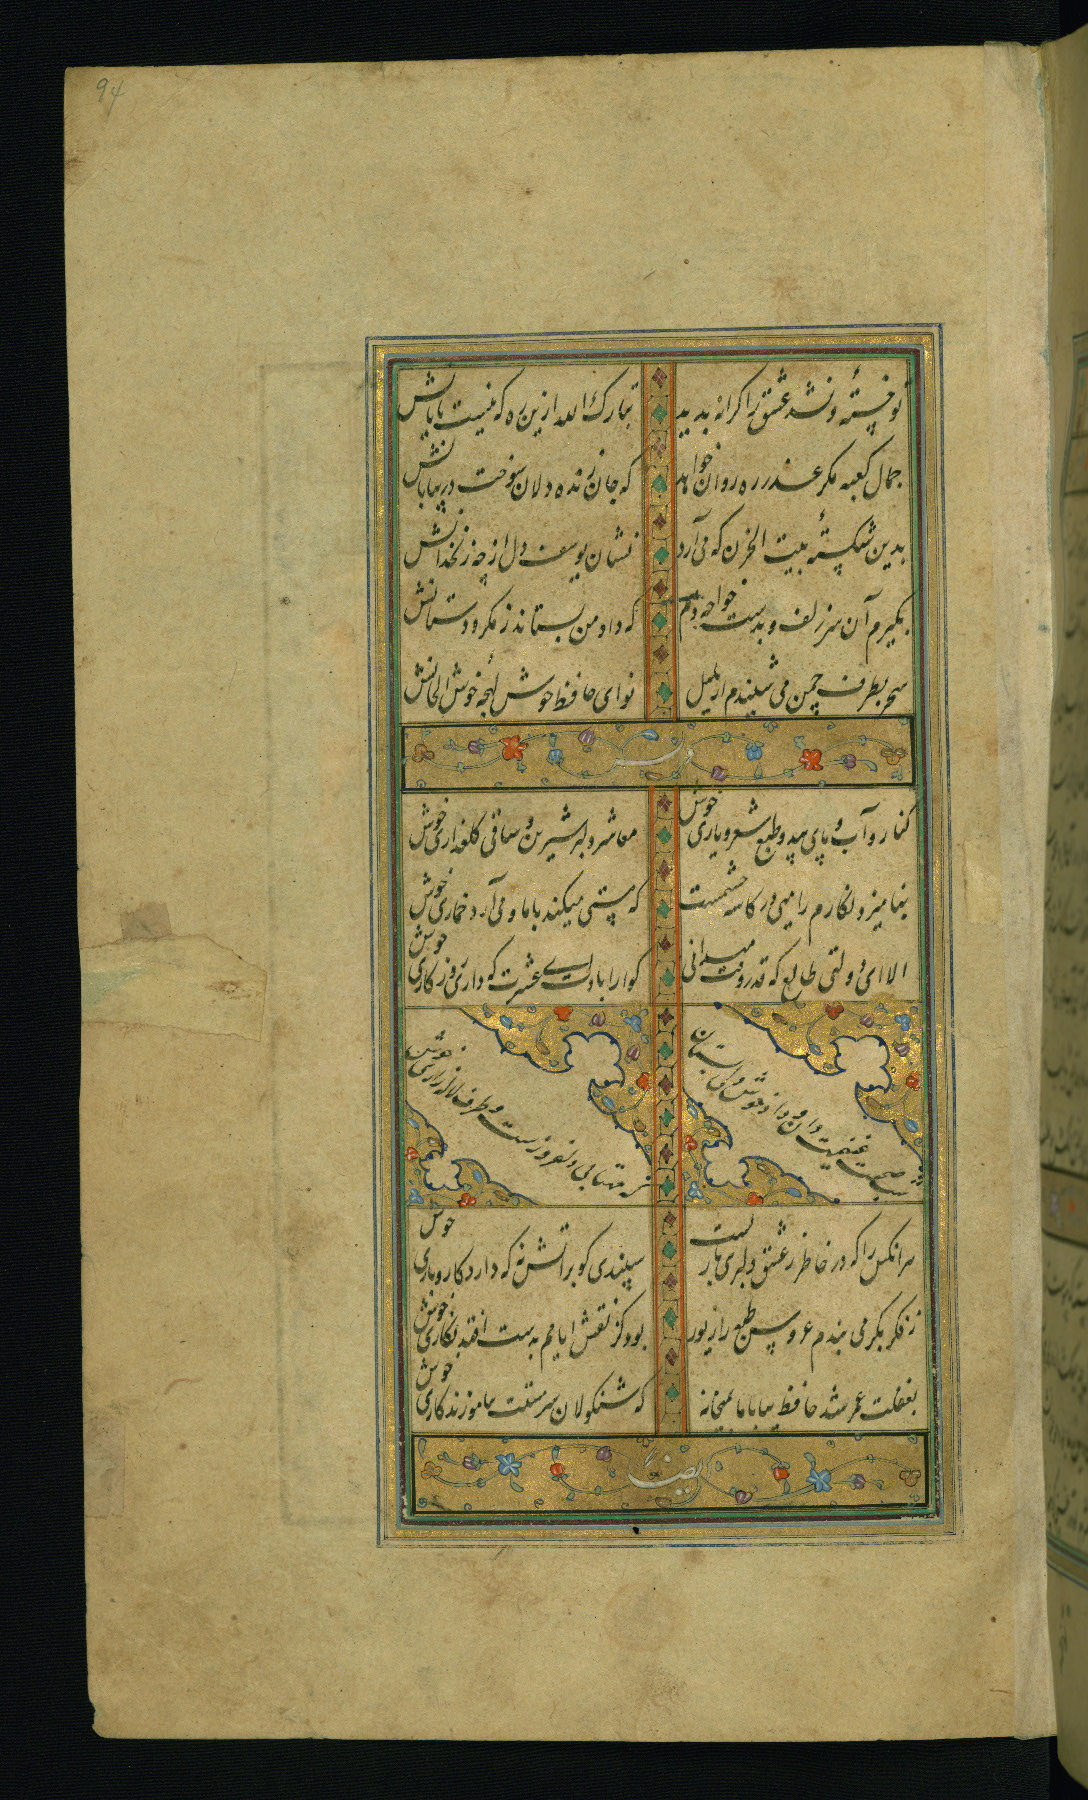 94
تو خسته و نشد عشق را کرانه پدید
تبارک الله ازین ره که نیست پایانش
جمال کعبه مکر عذر ره روان خواهد
که جان زنده دلان سوخت در بیابانش
بدین شکسته بیت الحزن که می آرد
نشان یوسف دل از چه زنخدانش
بکیرم آن سر زلف و بدست خواجه دهم
که داد من بستاند ز مکر و دستانش
سحر بطرف چمن می شنیدم از بلبل
نوای حافظ خوش لهجه خوش الحانش
کنار و آب و پای بید و طبع شعر و یاری خوش
معاشر دلبر شیرین و ساقی کلعذاری خوش
بنامیزد نکارم را میی در کاسه چشمست
که مستی میکند با ما و می آرد خماری خوش
الا ای دولتی طالع که قدر وقت میدانی
کوارا بادت این عشرت که داری روزکاری خوش
شب صحبت غنیمت دان و داد خوشدلی بستان
که مهتابی دلفروزست و طرف لاله زاری خوش
هر انکس را که در خاطر ز عشق دلبری باریست
سپندی کو بر اتش نه که دارد کار و باری خوش
ز فکر بکر می بندم عروس طبع را زیور
بود کز نقش ایامم بدست افتد نکاری خوش
بغفلت عمر شد حافظ بیا با ما بمیخانه
که شنکولان سرمستت بیاموزند کاری خوش
ایضا